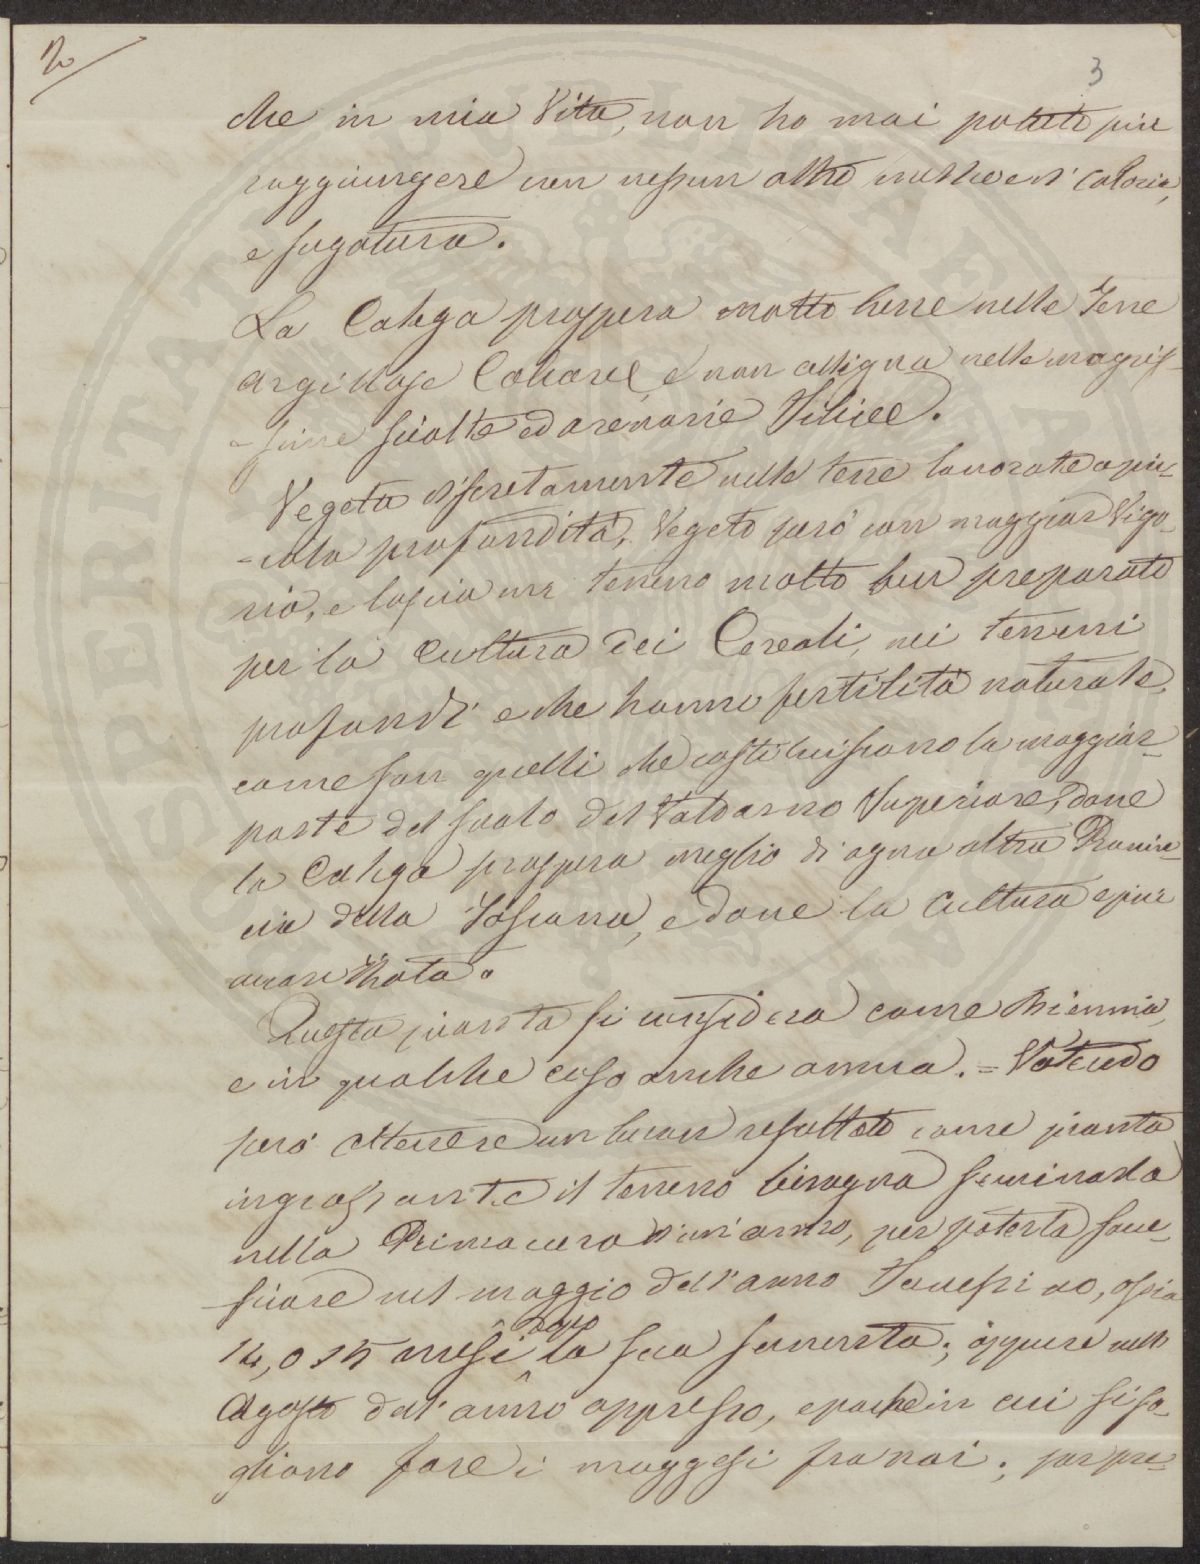 2
3
che in mia Vita, non ho mai potuto più
raggiungere con nessun altro metodo di caloria,
e sugatura.
La Calega prospera molto bene nelle Terre
argillose Calcaree, e non alligna nelle magris-
-sime sciolte ed arenarie Silicee.
Vegeta discretamente nelle terre lavorate a pic-
-cola profondità, Vegeta però con maggior Vigo-
ria, e lascia un terreno molto ben preparato
per la Cultura dei Cereali, nei terreni
profondi e che hanno fertilità naturale,
come son quelli che costituiscono la maggior
parte del suolo del Valdarno Superiore, dove
la Calega prospera meglio di ogni altra Provin-
cia della Toscana, e dove la Cultura e piu
accreditata.
Questa pianta si considera come Biennia,
e in qualche caso anche annua. = Volendo
però ottenere un buon resultato come pianta
ingrassante il terreno bisogna seminarla
nella Primavera di un anno, per poterla sove-
sciare nel maggio dell'anno Sucessivo, ossia
14, o 15 mesi dopo la sua sementa; oppure nell
Agosto dell'anno appresso, epoche in cui si so-
gliono fare i maggesi fra noi; per pre-